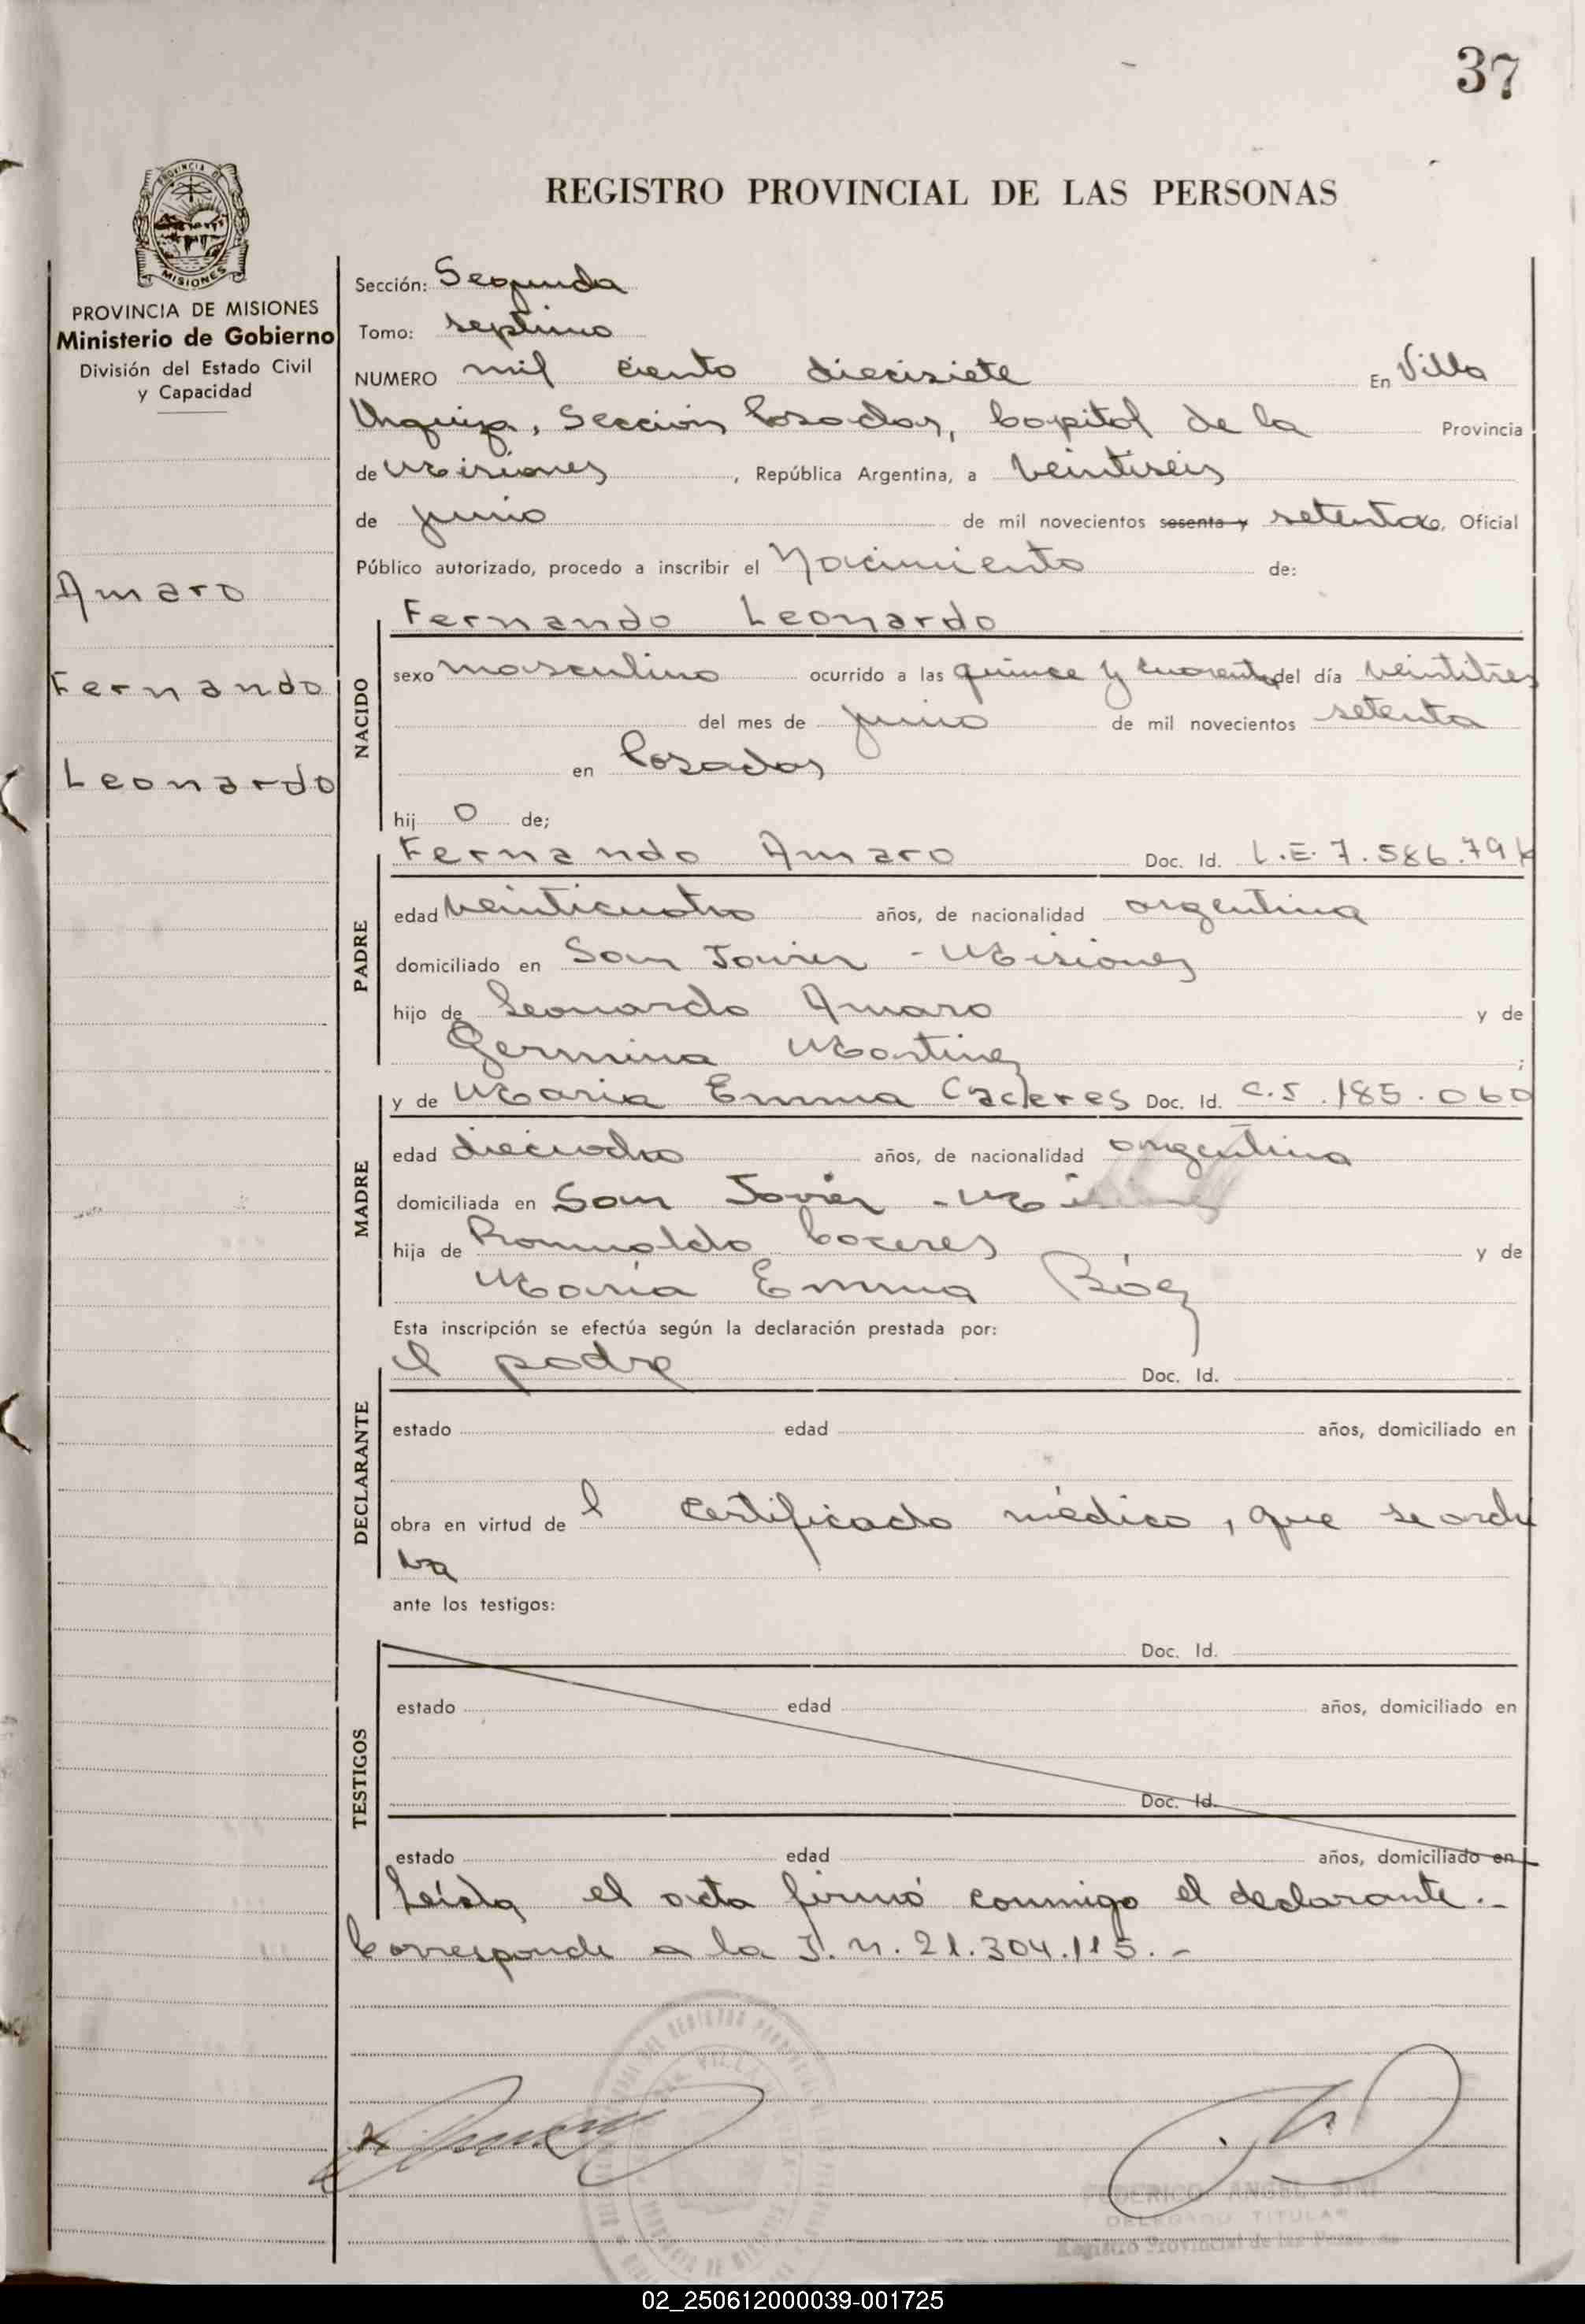 37
PROVINCIA DE
MISIONES
REGISTRO PROVINCIAL DE LAS PERSONAS
PROVINCIA DE MISIONES
Ministerio de Gobierno
División del Estado Civil
y Capacidad
Amaro
Fernando
Leonardo
Sección: Segunda
Tomo: septimo
NUMERO mil ciento diecisiete En Villa
Urquiza, Sección Posadas, Capital de la Provincia
de Misiones, República Argentina, a veintiseis
de junio de mil novecientos sesenta y setenta, Oficial
Público autorizado, procedo a inscribir el Nacimiento de:
NACIDO
Fernando Leonardo
sexo masculino ocurrido a las quince y cuarenta del día veintitres
del mes de junio de mil novecientos setenta
en Posadas
hij o de;
PADRE
Fernando Amaro Doc. Id. L.E. 7.586.794
edad veinticuatro años, de nacionalidad argentina
domiciliado en San Javier - Misiones
hijo de Leonardo Amaro y de
Germina Martinez;
MADRE
y de Maria Emma Caceres Doc. Id. C. 5.185.060
edad dieciocho años, de nacionalidad argentina
domiciliada en San Javier - Misiones
hija de Romualdo Caceres y de
María Emma Báez
Esta inscripción se efectúa según la declaración prestada por:
DECLARANTE
el padre Doc. Id.
estado edad años, domiciliado en
obra en virtud de l certificado médico, que se archi
va
ante los testigos:
TESTIGOS
Doc. Id.
estado edad años, domiciliado en
Doc. Id.
estado edad años, domiciliado en
Leída el acta firmó conmigo el declarante.-
Corresponde a la I.N. 21.304.115.-
FEDERICO ANGEL
DELEGADO TITULAR
Registro Provincial de las Personas
02_250612000039-001725